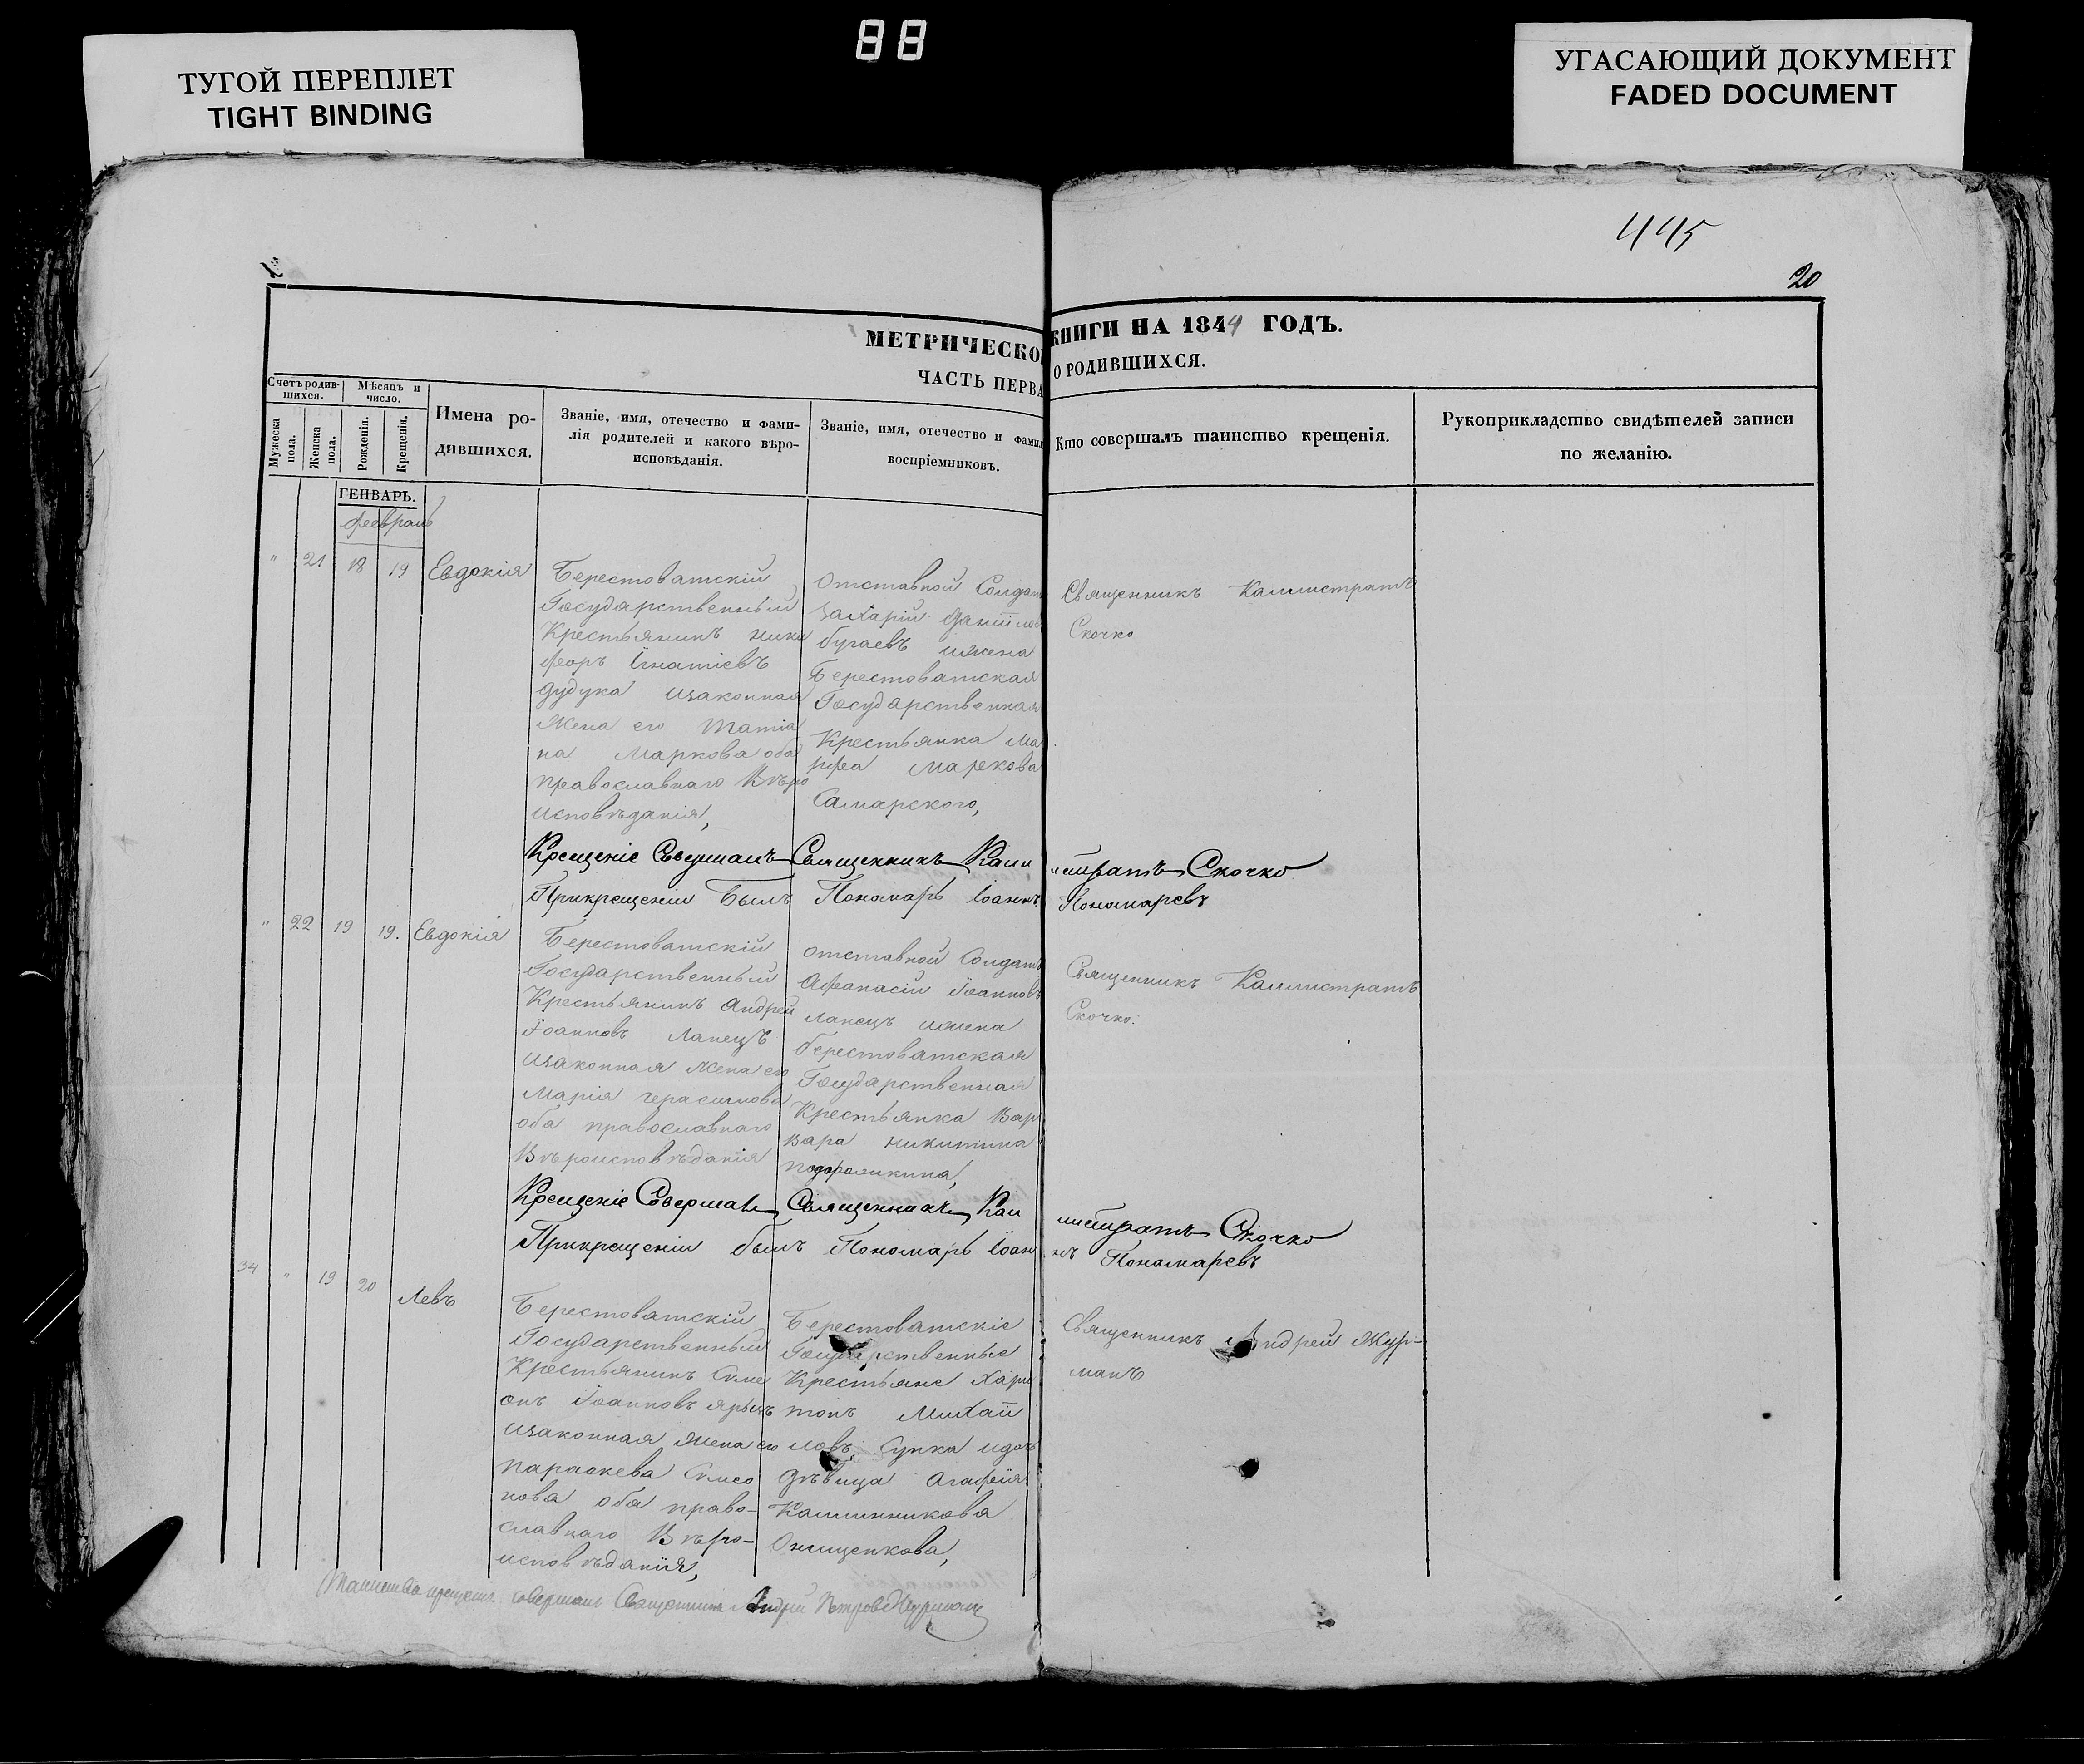 88
ТУГОЙ ПЕРЕПЛЕТ
TIGHT BINDING
УГАСАЮЩИЙ ДОКУМЕНТ
FADED DOCUMENT
445
20
МЕТРИЧЕСКО
КНИГИ НА 1844 ГОДЪ.
ЧАСТЬ ПЕРВА
О РОДИВШИХСЯ.
Счетъ родив-
шихся.
Мѣсяцъ и
число.
Мужеска
пола.
Женска
пола.
Рожденія.
Крещенія.
Имена ро-
дившихся.
Званіе, имя, отечество и фами-
лія родителей и какого вѣро-
исповѣданія.
Званіе, имя, отечество и фами
воспріемниковъ.
Кто совершалъ таинство крещенія.
Рукоприкладство свидѣтелей записи
по желанію.
ГЕНВАРЬ.
февраль
" 21 18 19 Евдокія
Берестоватскій
Государственный
Крестьянинъ Ники
форъ Игнатіевъ
Дудука изаконная
Жена его Татіа
на Маркова оба
православнаго Вѣро
исповѣданія,
Отставной Солдатъ
Захарій Даніилов
бугаевъ ижена
Берестоватская
Государственная
Крестьянка Ма
рфа Марекова
Самарского,
Священникъ Каллистратъ
Скочко
Крещеніе Совершалъ Священникъ Калли
стратъ Скочко
Прикрещеніи Былъ Пономарь Іоаннъ
Пономаревъ
" 22 19 19. Евдокія
Берестоватскій
Государственный
Крестьянинъ Андрей
Іоанновъ Лапецъ
изаконная Жена его
Марія Герасимова
оба православнаго
Вѣроисповѣданія
Отставной Солдатъ
Афанасій Іоанновъ
Лапецъ ижена
берестоватская
Государственная
Крестьянка Вар
вара Никитина
Священникъ Каллистратъ
Скочко.
Крещеніе Совершалъ Священникъ Кал
листратъ Скочко
Прикрещеніи былъ Пономарь Іоан
нъ Пономаревъ
34 " 19 20 Левъ
Берестоватскій
Государственный
Крестьянинъ Симе
онъ Іоанновъ
изаконная Жена его
Параскева Симео
нова оба право-
славнаго Вѣро-
исповѣданія,
Берестоватскіе
Государственные
Крестьяне Хари
тонъ Михаи
ловъ Супка идочь
Дѣвица Агафія
Калинникова
Онищенкова,
Священникъ Андрей Жур-
манъ
Таинство крещенія совершалъ Священникъ Андрей Петровъ Журманъ